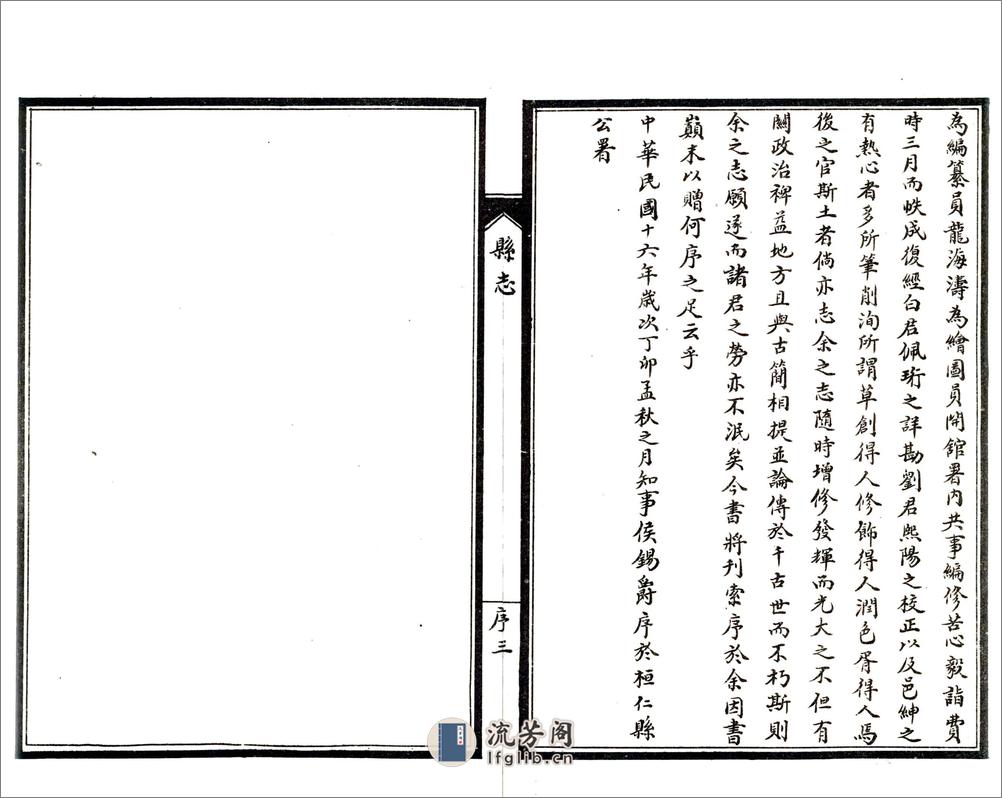 為編纂員龍海濤為繪圖員開舘署内共事編修苦心毅詣費
時三月而帙成復經白君佩珩之詳勘劉君熙陽之校正以及邑紳之
有熱心者多所筆削洵所謂草創得人修飾得人潤色胥得人焉
後之官斯土者倘亦志余之志隨時增修發輝而光大之不但有
關政治裨益地方且與古簡相提並論傳於千古世而不朽斯則
余之志願遂而諸君之勞亦不泯矣今書將刊索序於余因書
巔末以贈何序之足云乎
中華民國十六年歲次丁卯孟秋之月知事侯錫爵序於桓仁縣
公署
縣志
序三
流芳阁
lfglib.cn